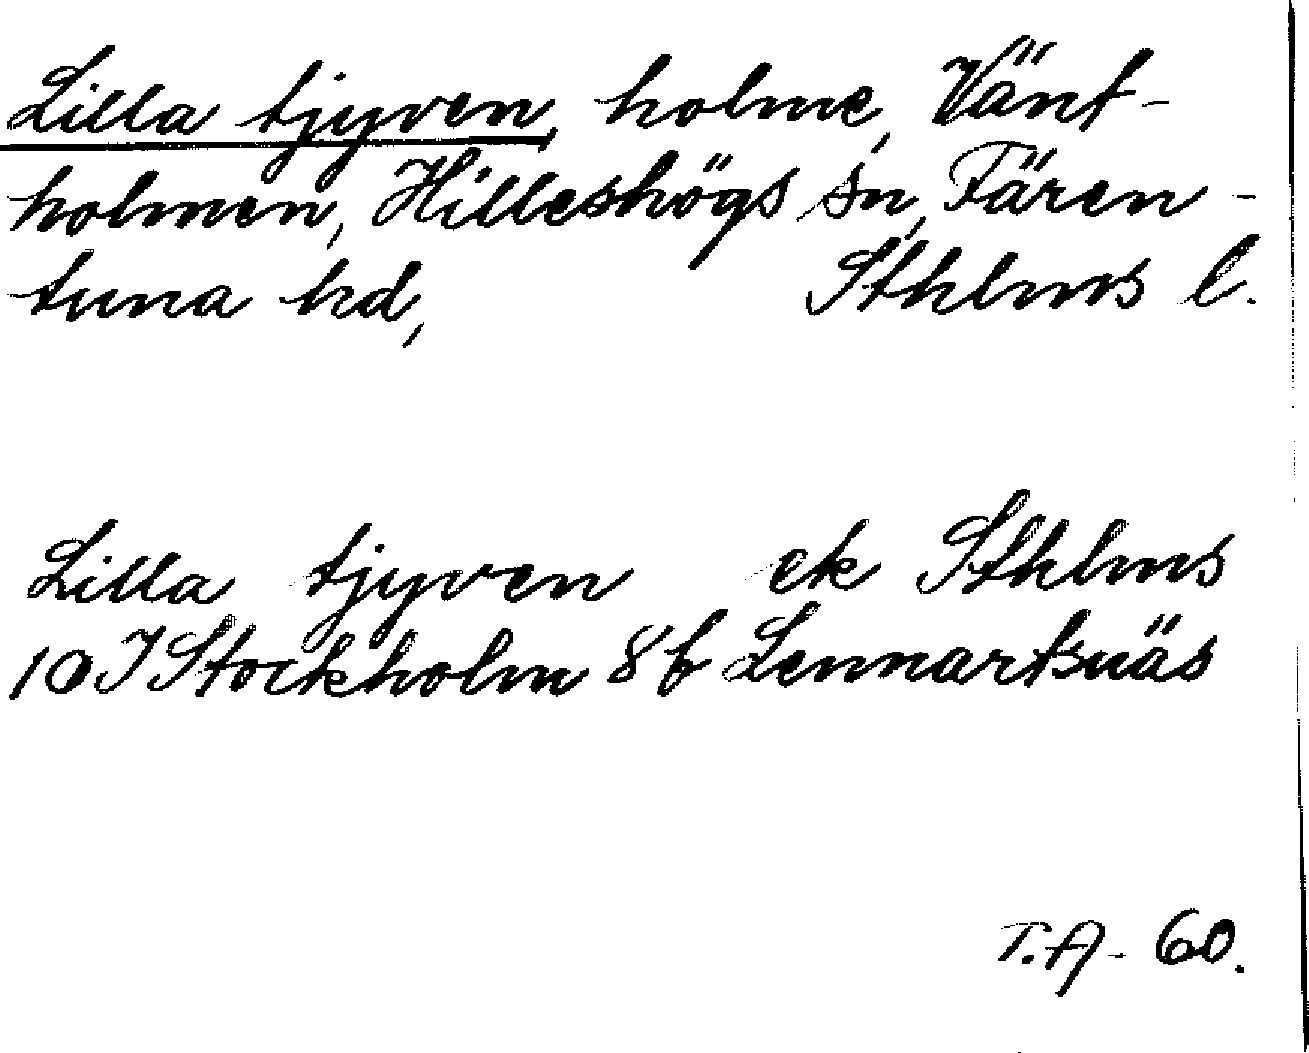 Lilla tjyven, holme, Vänt-
holmen, Hilleshögs sn, Fären-
tuna hd, Sthlms l.
Lilla tjyven ek Sthlms
10 I Stockholm 8 f Lennartsnäs
T.A. 60.